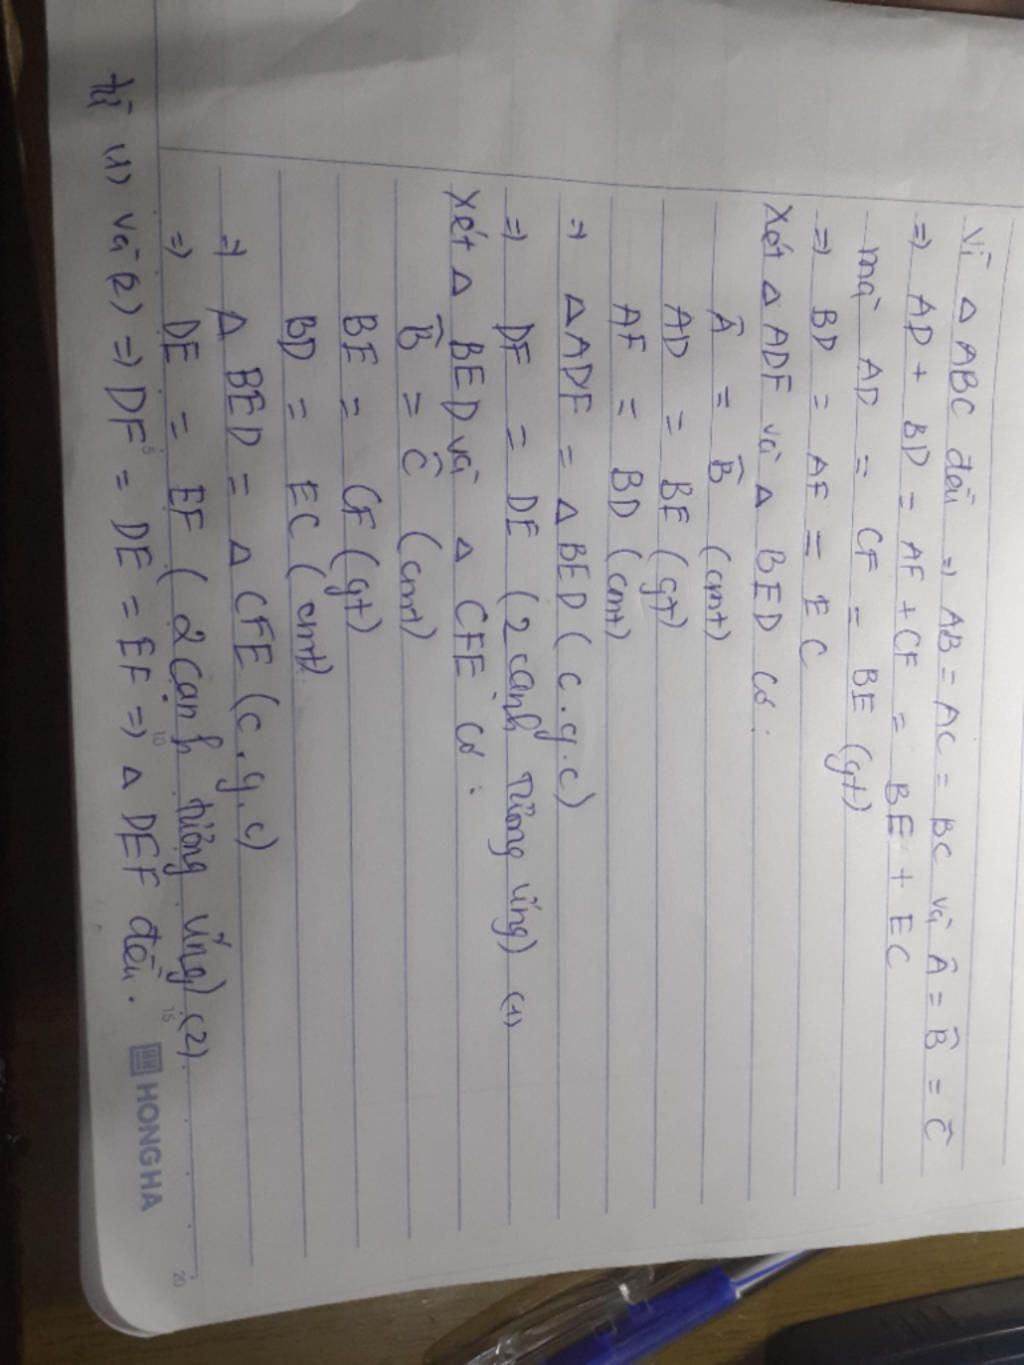 Vì Δ ABC đều => AB = AC = BC và Â = B̂ = Ĉ
=> AD + BD = AF + CF = BE + EC
mà AD = CF = BE (gt)
=> BD = AF = EC
Xét Δ ADF và Δ BED có:
Â = B̂ (cmt)
AD = BE (gt)
AF = BD (cmt)
=> Δ ADF = Δ BED (c.g.c)
=> DF = DE (2 cạnh tương ứng) (1)
Xét Δ BED và Δ CFE có:
B̂ = Ĉ (cmt)
BE = CF (gt)
BD = EC (cmt)
=> Δ BED = Δ CFE (c.g.c)
=> DE = EF (2 cạnh tương ứng) (2).
từ (1) và (2) => DF = DE = EF => Δ DEF đều.
5 10 15 20
HONG HA